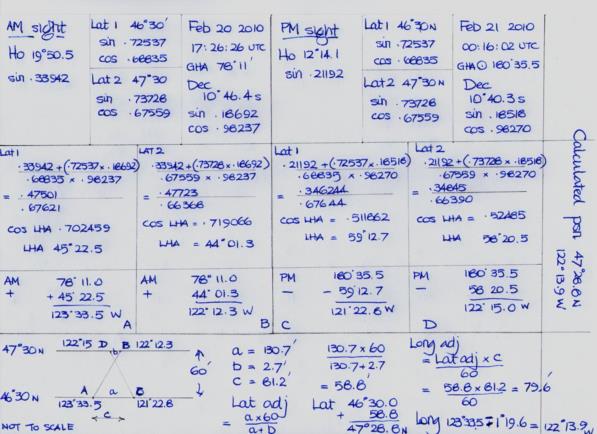 AM sight
Ho 19°50.5
sin .33942
Lat 1 46°30'
sin .72537
cos .68835
Lat 2 47°30
sin .73728
cos .67559
Feb 20 2010
17:26:26 UTC
GHA 78°11'
Dec
10°46.4 s
sin .18692
cos .98237
PM sight
Ho 12°14.1
sin .21192
Lat 1 46°30N
sin .72537
cos .68835
Lat 2 47°30N
sin .73728
cos .67559
Feb 21 2010
00:16:02 UTC
GHA☉ 180°35.5
Dec
10°40.3 s
sin .18518
cos .98270
Lat 1
.33942 + (.72537 x .18692)
.68835 x .98237
= .47501
.67621
cos LHA = .702459
LHA 45°22.5
LAT 2
.33942 + (.73728 x .18692)
.67559 x .98237
= .47723
.66368
cos LHA = .719066
LHA = 44°01.3
Lat 1
.21192 + (.72537 x .18518)
.68835 x .98270
= .346244
.67644
cos LHA = .511862
LHA = 59°12.7
Lat 2
.21192 + (.73728 x .18518)
.67559 x .98270
= .34845
.66390
cos LHA = .52485
LHA 58°20.5
AM 78°11.0
+ +45°22.5
123°33.5 W
A
AM 78°11.0
+ 44°01.3
122°12.3 W
B
PM 180°35.5
- - 59°12.7
121°22.8 W
C
PM 180°35.5
- 58 20.5
122°15.0 W
D
Calculated psn 47°28.8N
122°13.9W
47°30N
122°15 D B 122°12.3
b
60'
46°30N
A a C
123°33.5 121°22.8
c
NOT TO SCALE
a = 130.7'
b = 2.7'
c = 81.2'
Lat adj
= a x 60
a + b
130.7 x 60
130.7 + 2.7
= 58.8'
Lat 46°30.0
+ 58.8
47°28.8N
Long adj
= Lat adj x c
60
= 58.8 x 81.2 = 79.6'
60
Long 123°33.5 - 1°19.6 = 122°13.9W